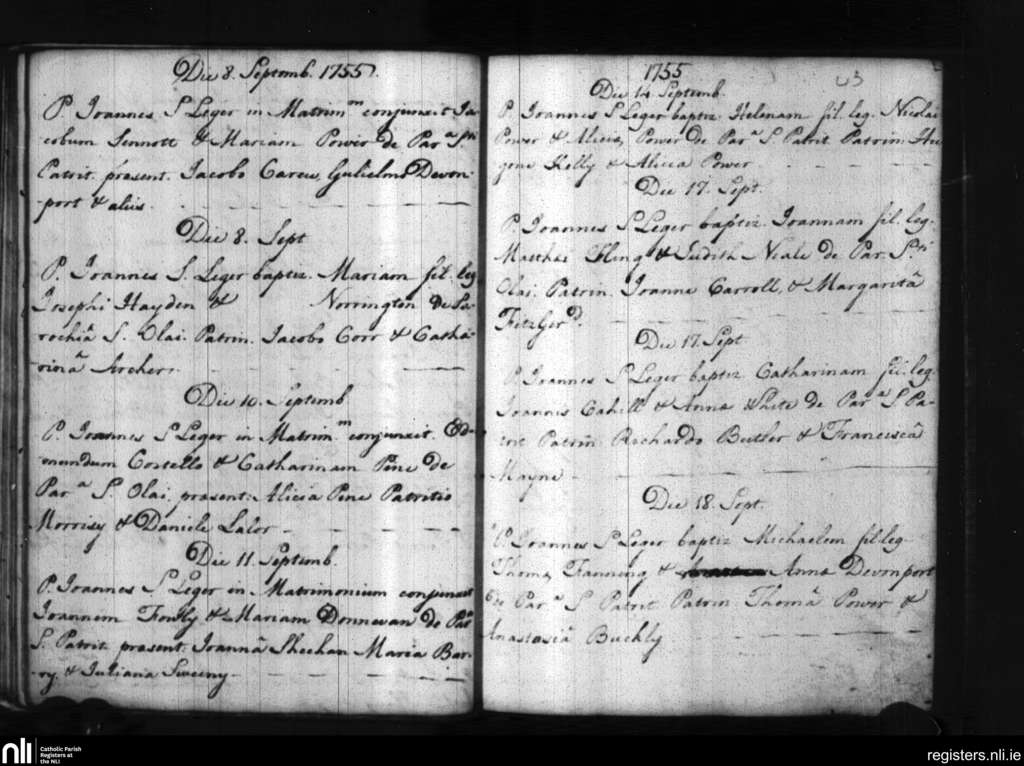 Die 8. Septemb. 1755.
P. Joannes S Leger in Matrim.m conjunxit Ja-
cobum Sennott & Mariam Power de Par.a S.ti
Patrit. present. Jacobo Carew, Gulielmo Devon-
port & aliis.
Die 8. Sept
P. Joannes S. Leger baptiz. Mariam fil. leg
Josephi Hayden & Norrington de Pa-
rochiâ S. Olai. Patrin. Jacobo Corr & Catha-
rinâ Archer.
Die 10. Septemb
P. Joannes S Leger in Matrim.m conjunxit. Ed-
mundum Costello & Catharinam Pine de
Par.a S. Olai, prasent. Alicia Pine Patritio
Morrisy & Daniele Lalor
Die 11. Septemb.
P. Joannes S Leger in Matrimonium conjunxit
Joannem Fowly & Mariam Donnevan de Par
S. Patrit prasent. Joannâ Sheehan Maria Bar-
ry. & Juliana Sweeny
1755
Die 14 Septemb.
P. Joannes S Leger baptiz. Helenam fil. leg. Nicolai
Power & Alicia Power de Par.a S. Patrit Patrin Hu-
gone Kelly & Alicia Power
Die 17. Sept.
P. Joannes S Leger baptiz. Joannam fil. leg.
Matthai Fling & Judith Neale de Par. S.ti
Olai. Patrin. Joanne Carroll, & Margaritâ
FitzGer.d.
Die 17. Sept
P. Joannes S Leger baptiz. Catharinam fil. leg.
Joannis Cahill & Annæ White de Par.a S Pa-
trit Patrin Richardo Butler & Franciscâ
Mayne
Die 18. Sept.
P. Joannes S Leger baptiz Michaelem fil. leg
Thoma Fanning & Annæ Devonport
de Par.a S Patrit Patrin Thomâ Power &
Anastasiâ Buckly
nli
Catholic Parish
Registers at
the NLI
registers.nli.ie